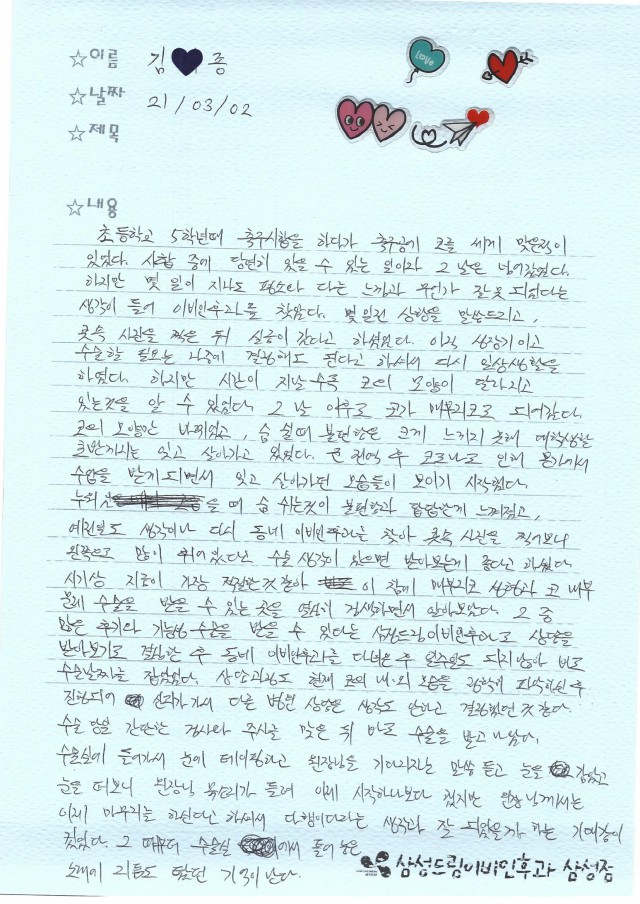 ☆이름 김 종
☆날짜 21/03/02
☆제목
Love
☆내용
초등학교 5학년때 축구시합을 하다가 축구공에 코를 세게 맞은적이
있었다. 시합 중에 당연히 있을 수 있는 일이라 그 날은 넘어갔었다.
하지만 몇 일이 지나도 평소와 다른 느낌과 무언가 잘못 되었다는
생각이 들어 이비인후과를 찾았다. 몇일전 상황을 말씀드리고,
콧속 사진을 찍은 뒤 실금이 갔다고 하셨었다. 아직 성장기이고
수술할 필요는 나중에 결정해도 된다고 하셔서 다시 일상생활을
하였다. 하지만 시간이 지날수록 코의 모양이 달라지고
있는것을 알 수 있었다. 그 날 이후로 코가 매부리코로 되어갔다.
코의 모양만 바뀌었고, 숨 쉴때 불편함은 크게 느끼지 못해 대학생활
초반까지는 잊고 살아가고 있었다. 군 전역 후 코로나로 인해 집에서
수업을 받게 되면서 잊고 살아가던 모습들이 보이기 시작했다.
누워 을 때 숨 쉬는것이 불편함과 답답함이 느껴졌고,
예전일도 생각이나 다시 동네 이비인후과를 찾아 콧속 사진을 찍어보니
왼쪽으로 많이 휘어있다고 수술 생각이 있으면 받아보는게 좋다고 하셨다.
시기상 지금이 가장 적절한것 같아 이 참에 매부리코 성형과 코 내부
문제 수술을 받을 수 있는 곳을 열심히 검색하면서 알아보았다. 그 중
많은 후기와 기능성 수술을 받을 수 있다는 삼성드림이비인후과로 상담을
받아보기로 결심한 후 동네 이비인후과를 다녀온 후 일주일도 되지않아 바로
수술날짜를 잡았었다. 상담과정도 현재 코의 내·외 모습을 정확히 파악하신 후
진행되어 신뢰가 가서 다른 병원 상담은 생각도 안하고 결정했었던 것 같다.
수술 당일 간단한 검사와 주사를 맞은 뒤 바로 수술을 받고 나왔다.
수술실에 들어가서 눈에 테이핑하고 원장님을 기다리라는 말씀 듣고 눈을 감았고
눈을 떠보니 원장님 목소리가 들려 이제 시작하나보다 했지만 원장님께서는
이제 마무리를 하신다고 하셔서 다행이다라는 생각과 잘 되었을까 하는 기대감이
컸었다. 그 때부터 수술실 에서 틀어놓은
노래에 리듬도 탔던 기억이 난다.
삼성드림이비인후과 삼성점